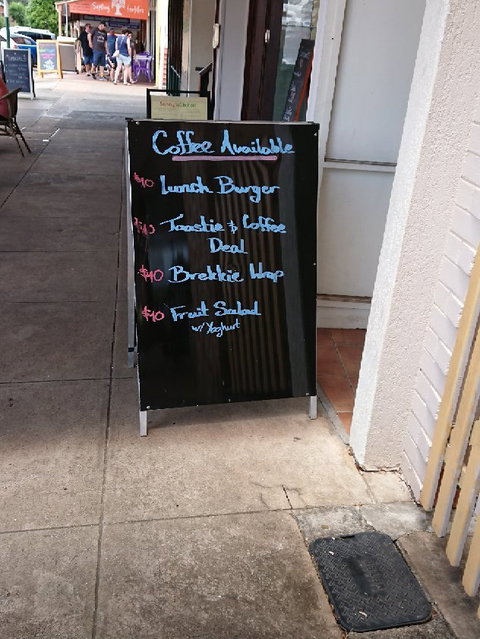 Coffee Available
$10 Lunch Burger
$10 Toastie & Coffee
Deal
$10 Brekkie Wrap
$10 Fruit Salad
w/ Yoghurt